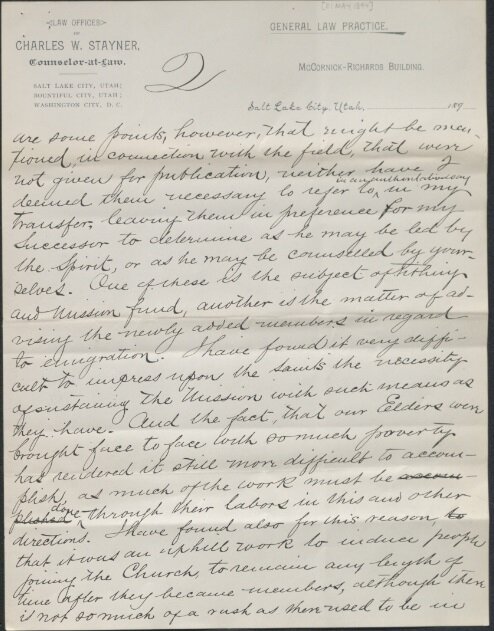 [01 MAY 1894]
LAW OFFICES
OF
CHARLES W. STAYNER,
Counselor-at-Law.
SALT LAKE CITY, UTAH;
BOUNTIFUL CITY, UTAH;
WASHINGTON CITY, D. C.
2
GENERAL LAW PRACTICE.
McCornick-Richards Building.
Salt Lake City, Utah, 189
are some points, however, that might be men-
tioned, in connection with the field, that were
not given for publication, neither have I
deemed them necessary to refer to, in my
transfer, leaving them in preference for my
successor to determine as he may be led by
the Spirit, or as he may be counselled by your-
selves. One of these is the subject of tithing
and Mission fund, another is the matter of ad-
vising the newly added members in regard
to emigration. I have found it very diffi-
cult to impress upon the Saints the necessity
of sustaining the Mission with such means as
they have. And the fact, that our Elders were
brought face to face with so much poverty
has rendered it still more difficult to accom-
plish, as much of the work must be accom-
plished done through their labors in this and other
directions. I have found also for this reason, to
that it was an uphill work to induce people
joining the Church, to remain any length of
time after they became members, although there
is not so much of a rush as there used to be in